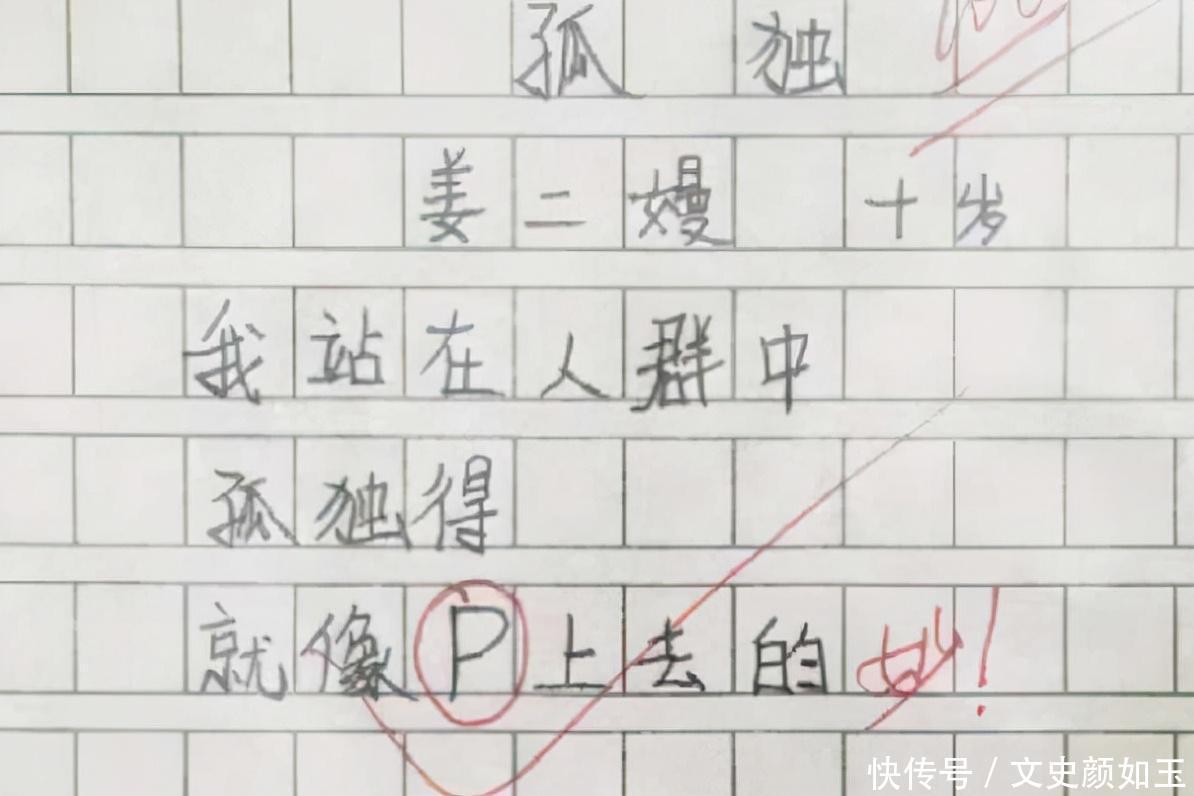 孤独 100
姜二嫚 十岁
我站在人群中
孤独得
就像P上去的 妙!
快传号/文史颜如玉